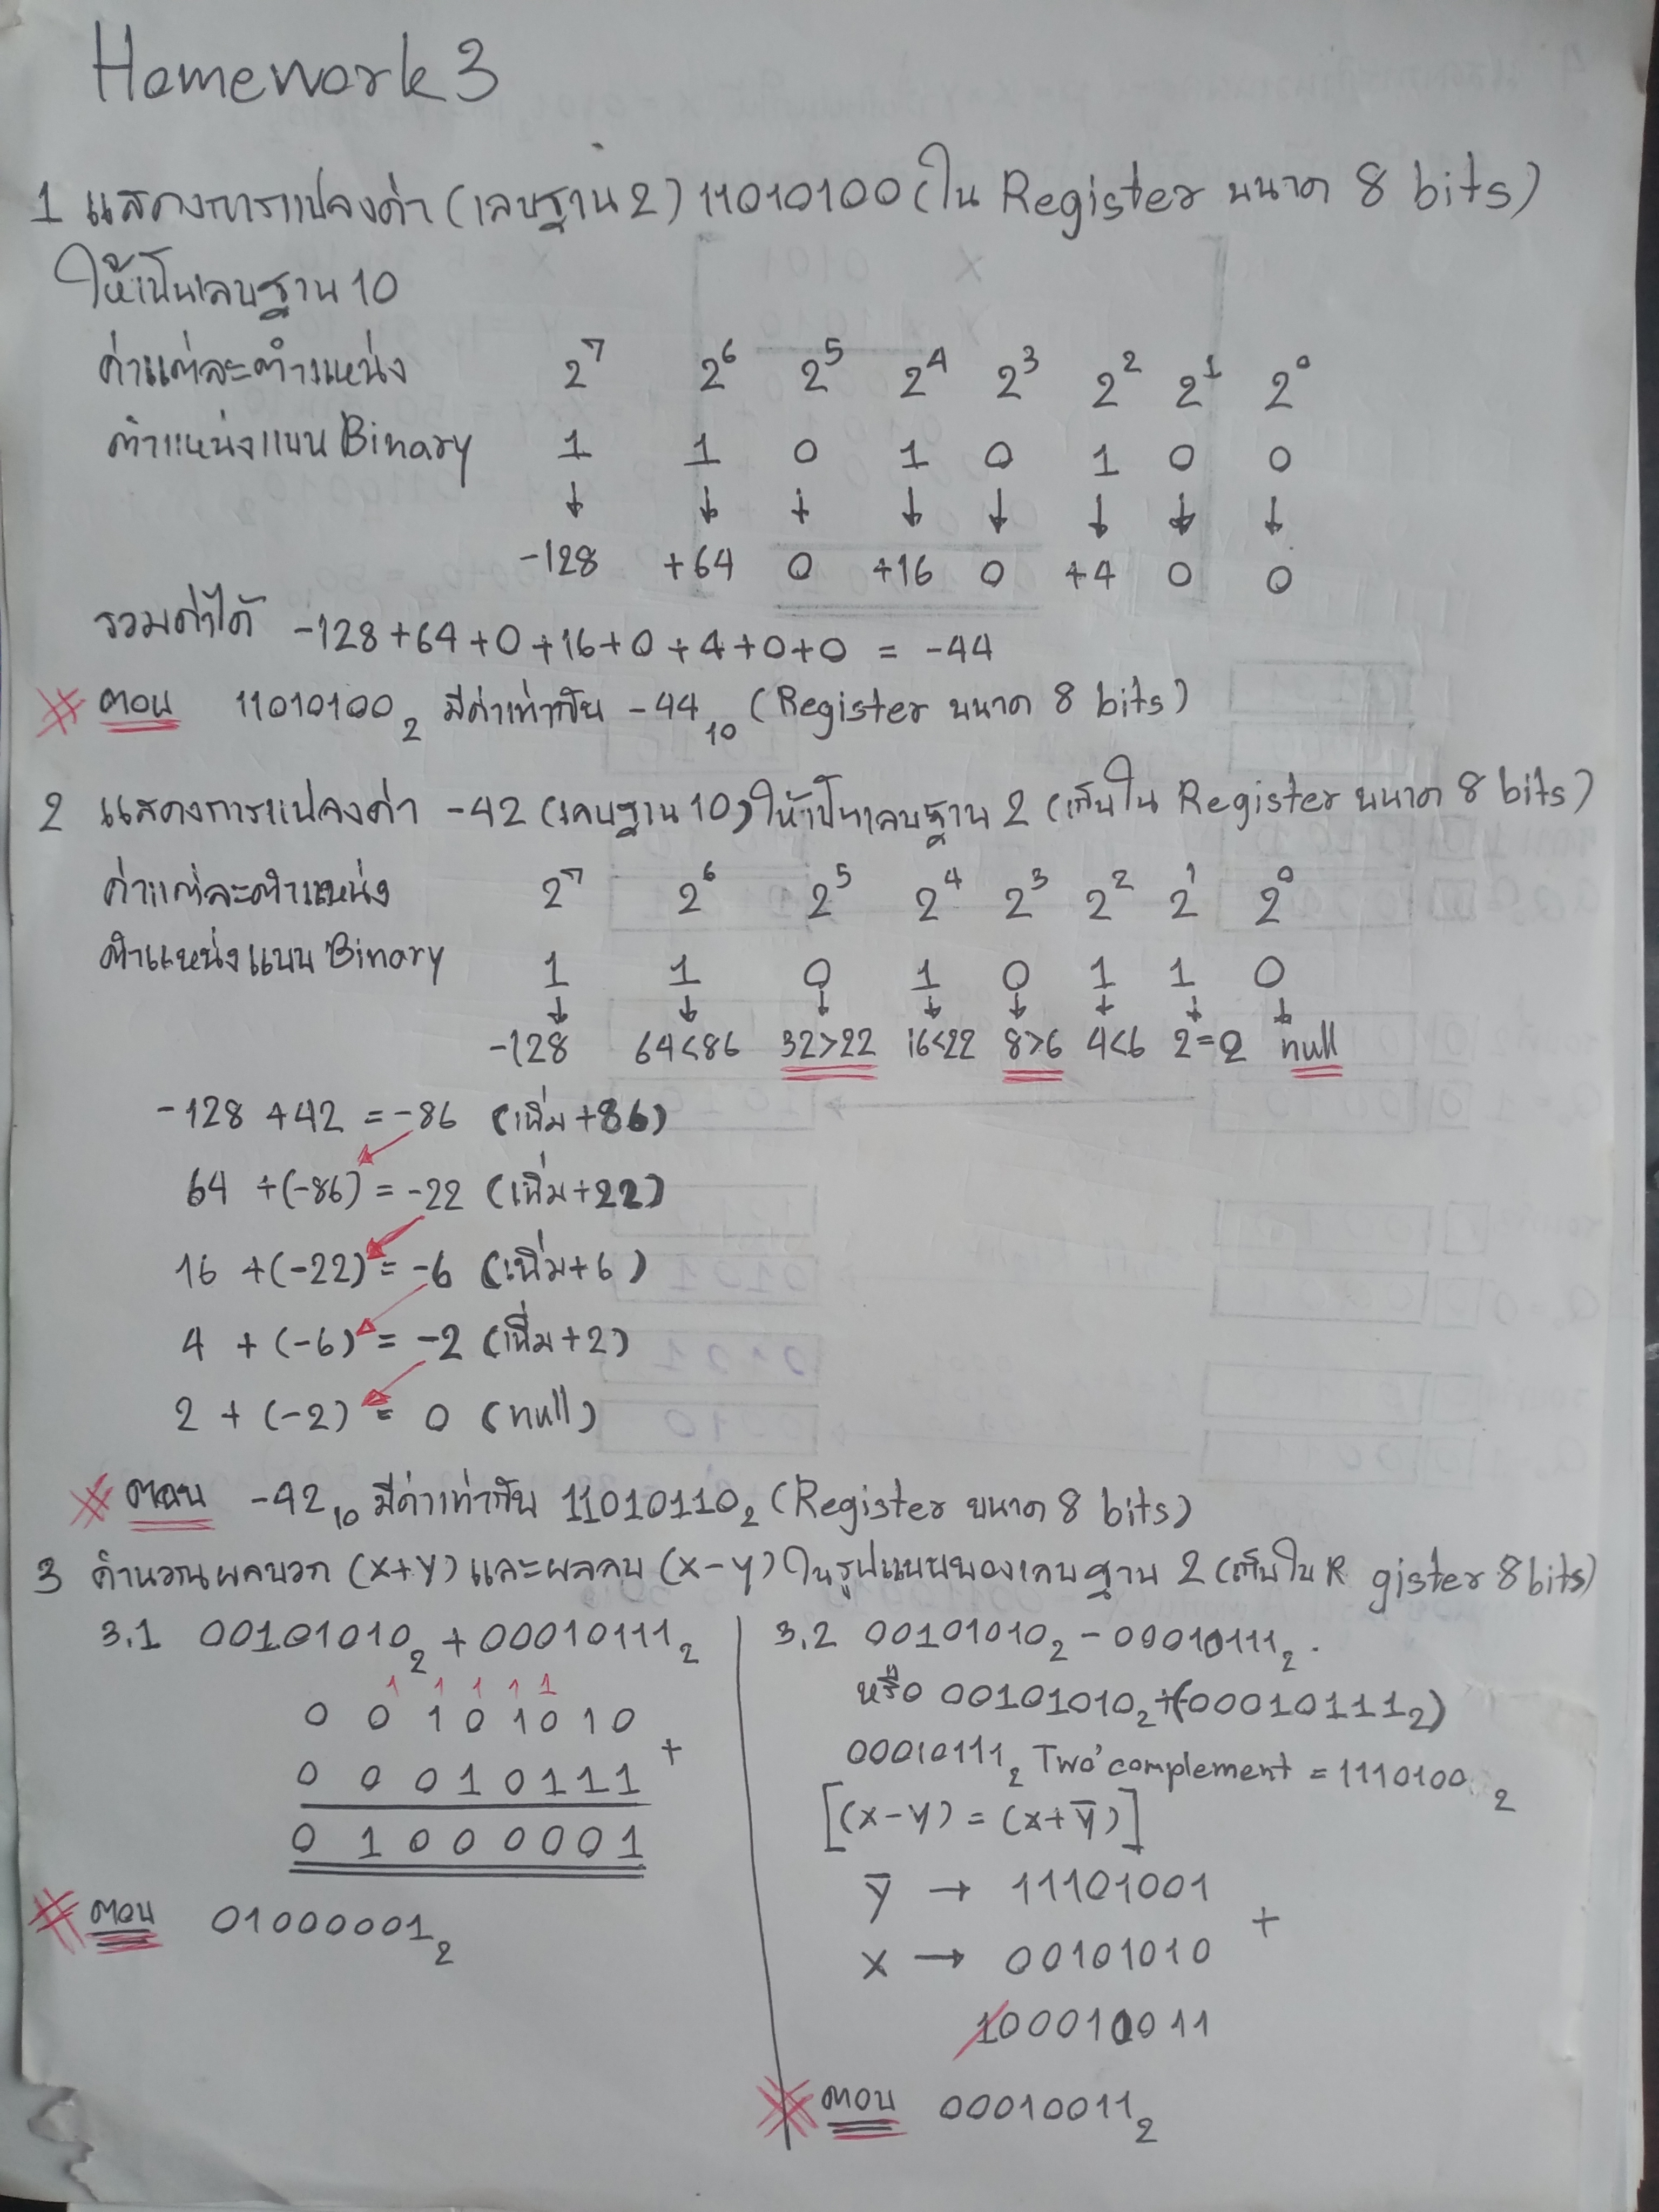 Homework 3
1 แสดงการแปลงค่า (เลขฐาน 2) 11010100 (ใน Register ขนาด 8 bits)
ให้เป็นเลขฐาน 10
ค่าแต่ละตำแหน่ง 2⁷ 2⁶ 2⁵ 2⁴ 2³ 2² 2¹ 2⁰
ตำแหน่งแบบ Binary 1 1 0 1 0 1 0 0
↓ ↓ ↓ ↓ ↓ ↓ ↓ ↓
-128 +64 0 +16 0 +4 0 0
รวมค่าได้ -128+64+0+16+0+4+0+0 = -44
ตอบ 11010100₂ มีค่าเท่ากับ -44₁₀ (Register ขนาด 8 bits)
2 แสดงการแปลงค่า -42 (เลขฐาน 10) ให้เป็นเลขฐาน 2 (เก็บใน Register ขนาด 8 bits)
ค่าแต่ละตำแหน่ง 2⁷ 2⁶ 2⁵ 2⁴ 2³ 2² 2¹ 2⁰
ตำแหน่งแบบ Binary 1 1 0 1 0 1 1 0
↓ ↓ ↓ ↓ ↓ ↓ ↓ ↓
-128 64<86 32>22 16<22 8>6 4<6 2=2 null
-128 +42 = -86 (เพิ่ม+86)
64 +(-86) = -22 (เพิ่ม+22)
16 +(-22) = -6 (เพิ่ม+6)
4 + (-6) = -2 (เพิ่ม+2)
2 + (-2) = 0 (null)
ตอบ -42₁₀ มีค่าเท่ากับ 11010110₂ (Register ขนาด 8 bits)
3 คำนวณผลบวก (x+y) และผลลบ (x-y) ในรูปแบบของเลขฐาน 2 (เก็บใน R gister 8 bits)
3.1 00101010₂ + 00010111₂
1 1 1 1 1
0 0 1 0 1 0 1 0
+
0 0 0 1 0 1 1 1
0 1 0 0 0 0 0 1
ตอบ 01000001₂
3.2 00101010₂ - 00010111₂
หรือ 00101010₂+(-00010111₂)
00010111₂ Two'complement = 1110100 ₂
[(x-y) = (x+y̅)]
y̅ → 11101001
+
x → 00101010
100010011
ตอบ 00010011₂